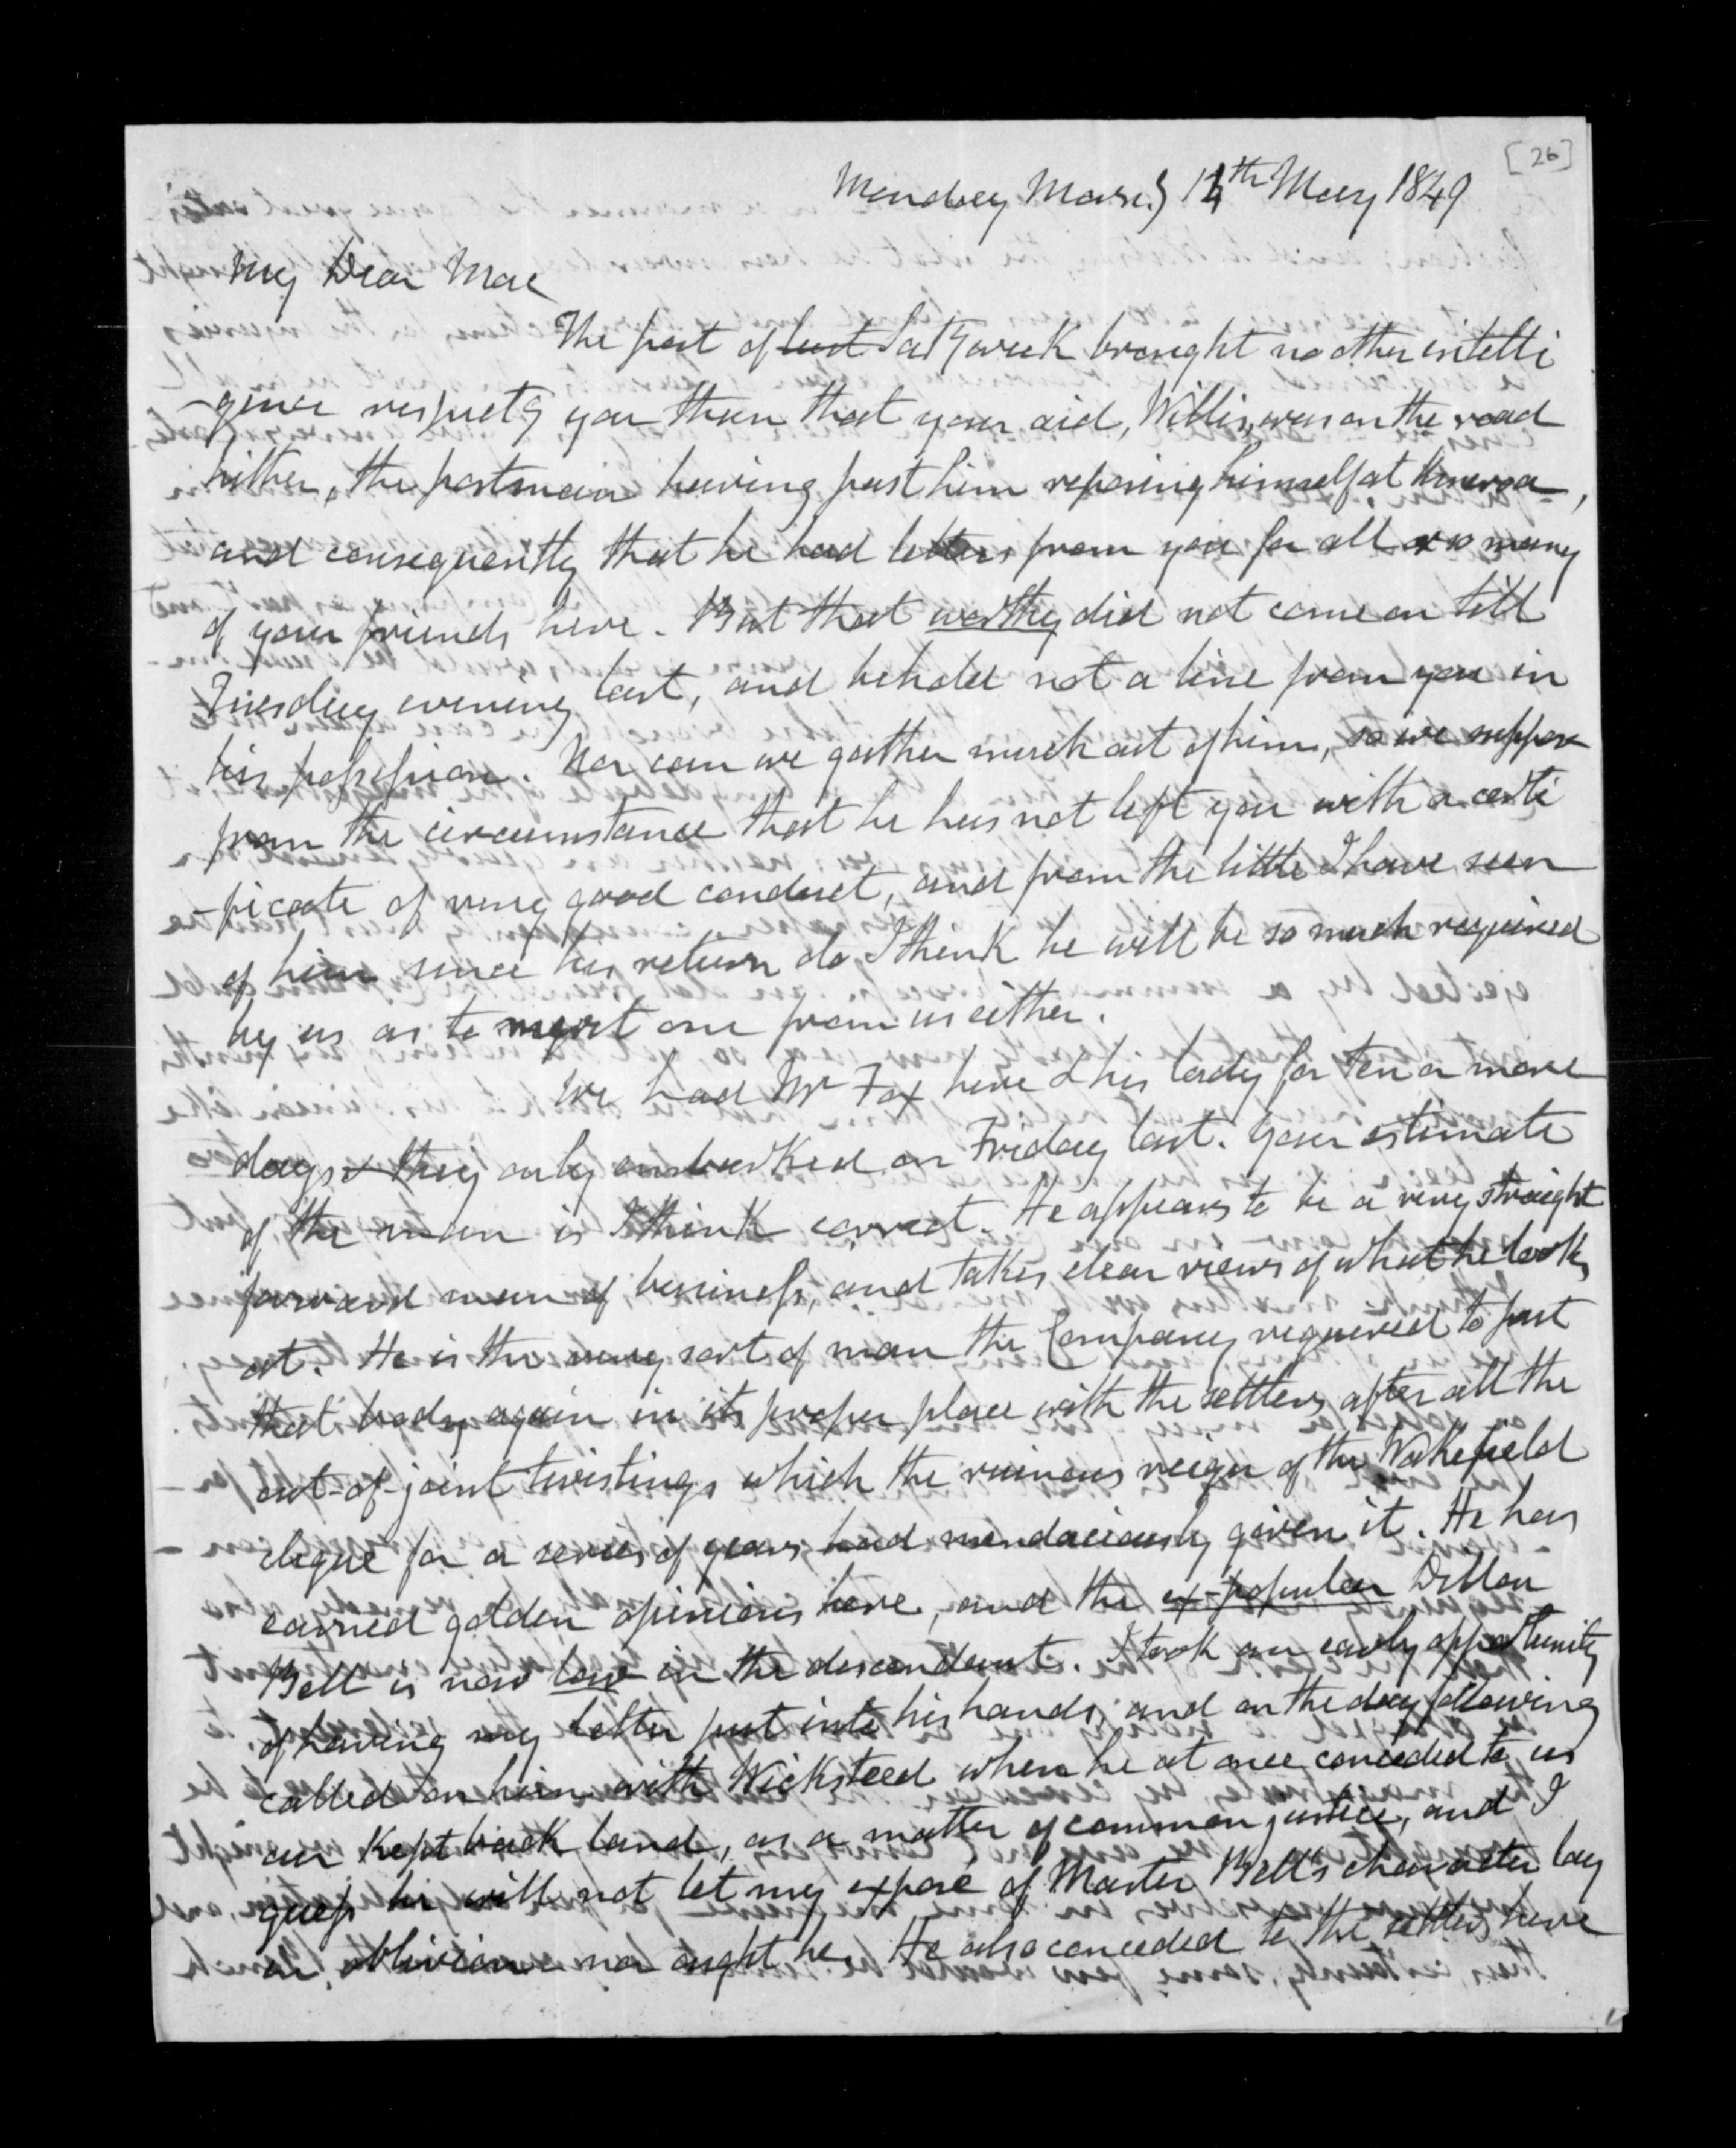 [26]
Monday Morng 14th May 1849
My Dear Mac
The post of last Saty week brought no other intelli
-gence respectg you than that your aid, Willis, was on the road
hither, the postman having past him reposing himself at
and consequently that he had letters from you for all or so many
of your friends here. But that worthy did not come on till
Tuesday evening last, and behold not a line from you in
his possession. Nor can we gather much out of him, so we suppose
from the circumstance that he has not left you with a certi
-ficate of very good conduct, and from the little I have seen
of him since his return do I think he will be so much required
by us as to merit one from us either.
We had Mr Fox here & his lady for ten or more
days & they only embarked on Friday last. Your estimate
of the man is I think correct. He appears to be a very straight
forward man of business, and takes clear views of what he looks
at. He is the very sort of man the Company required to put
that body again in its proper place with the settlers after all the
out-of-joint twistings which the ruinous reign of the Wakefield
clique for a series of years had mendaciously given it. He has
earned golden opinions here, and the ex-popular Dillon
Bell is now low in the descendant. I took an early opportunity
of having my letter put into his hands, and on the day following
called on him with Wicksteed when he at once conceded to us
our kept back land, as a matter of common justice, and I
guess he will not let my exposé of Master Bell's character lay
in oblivion nor ought he. He also conceded to the settlers here